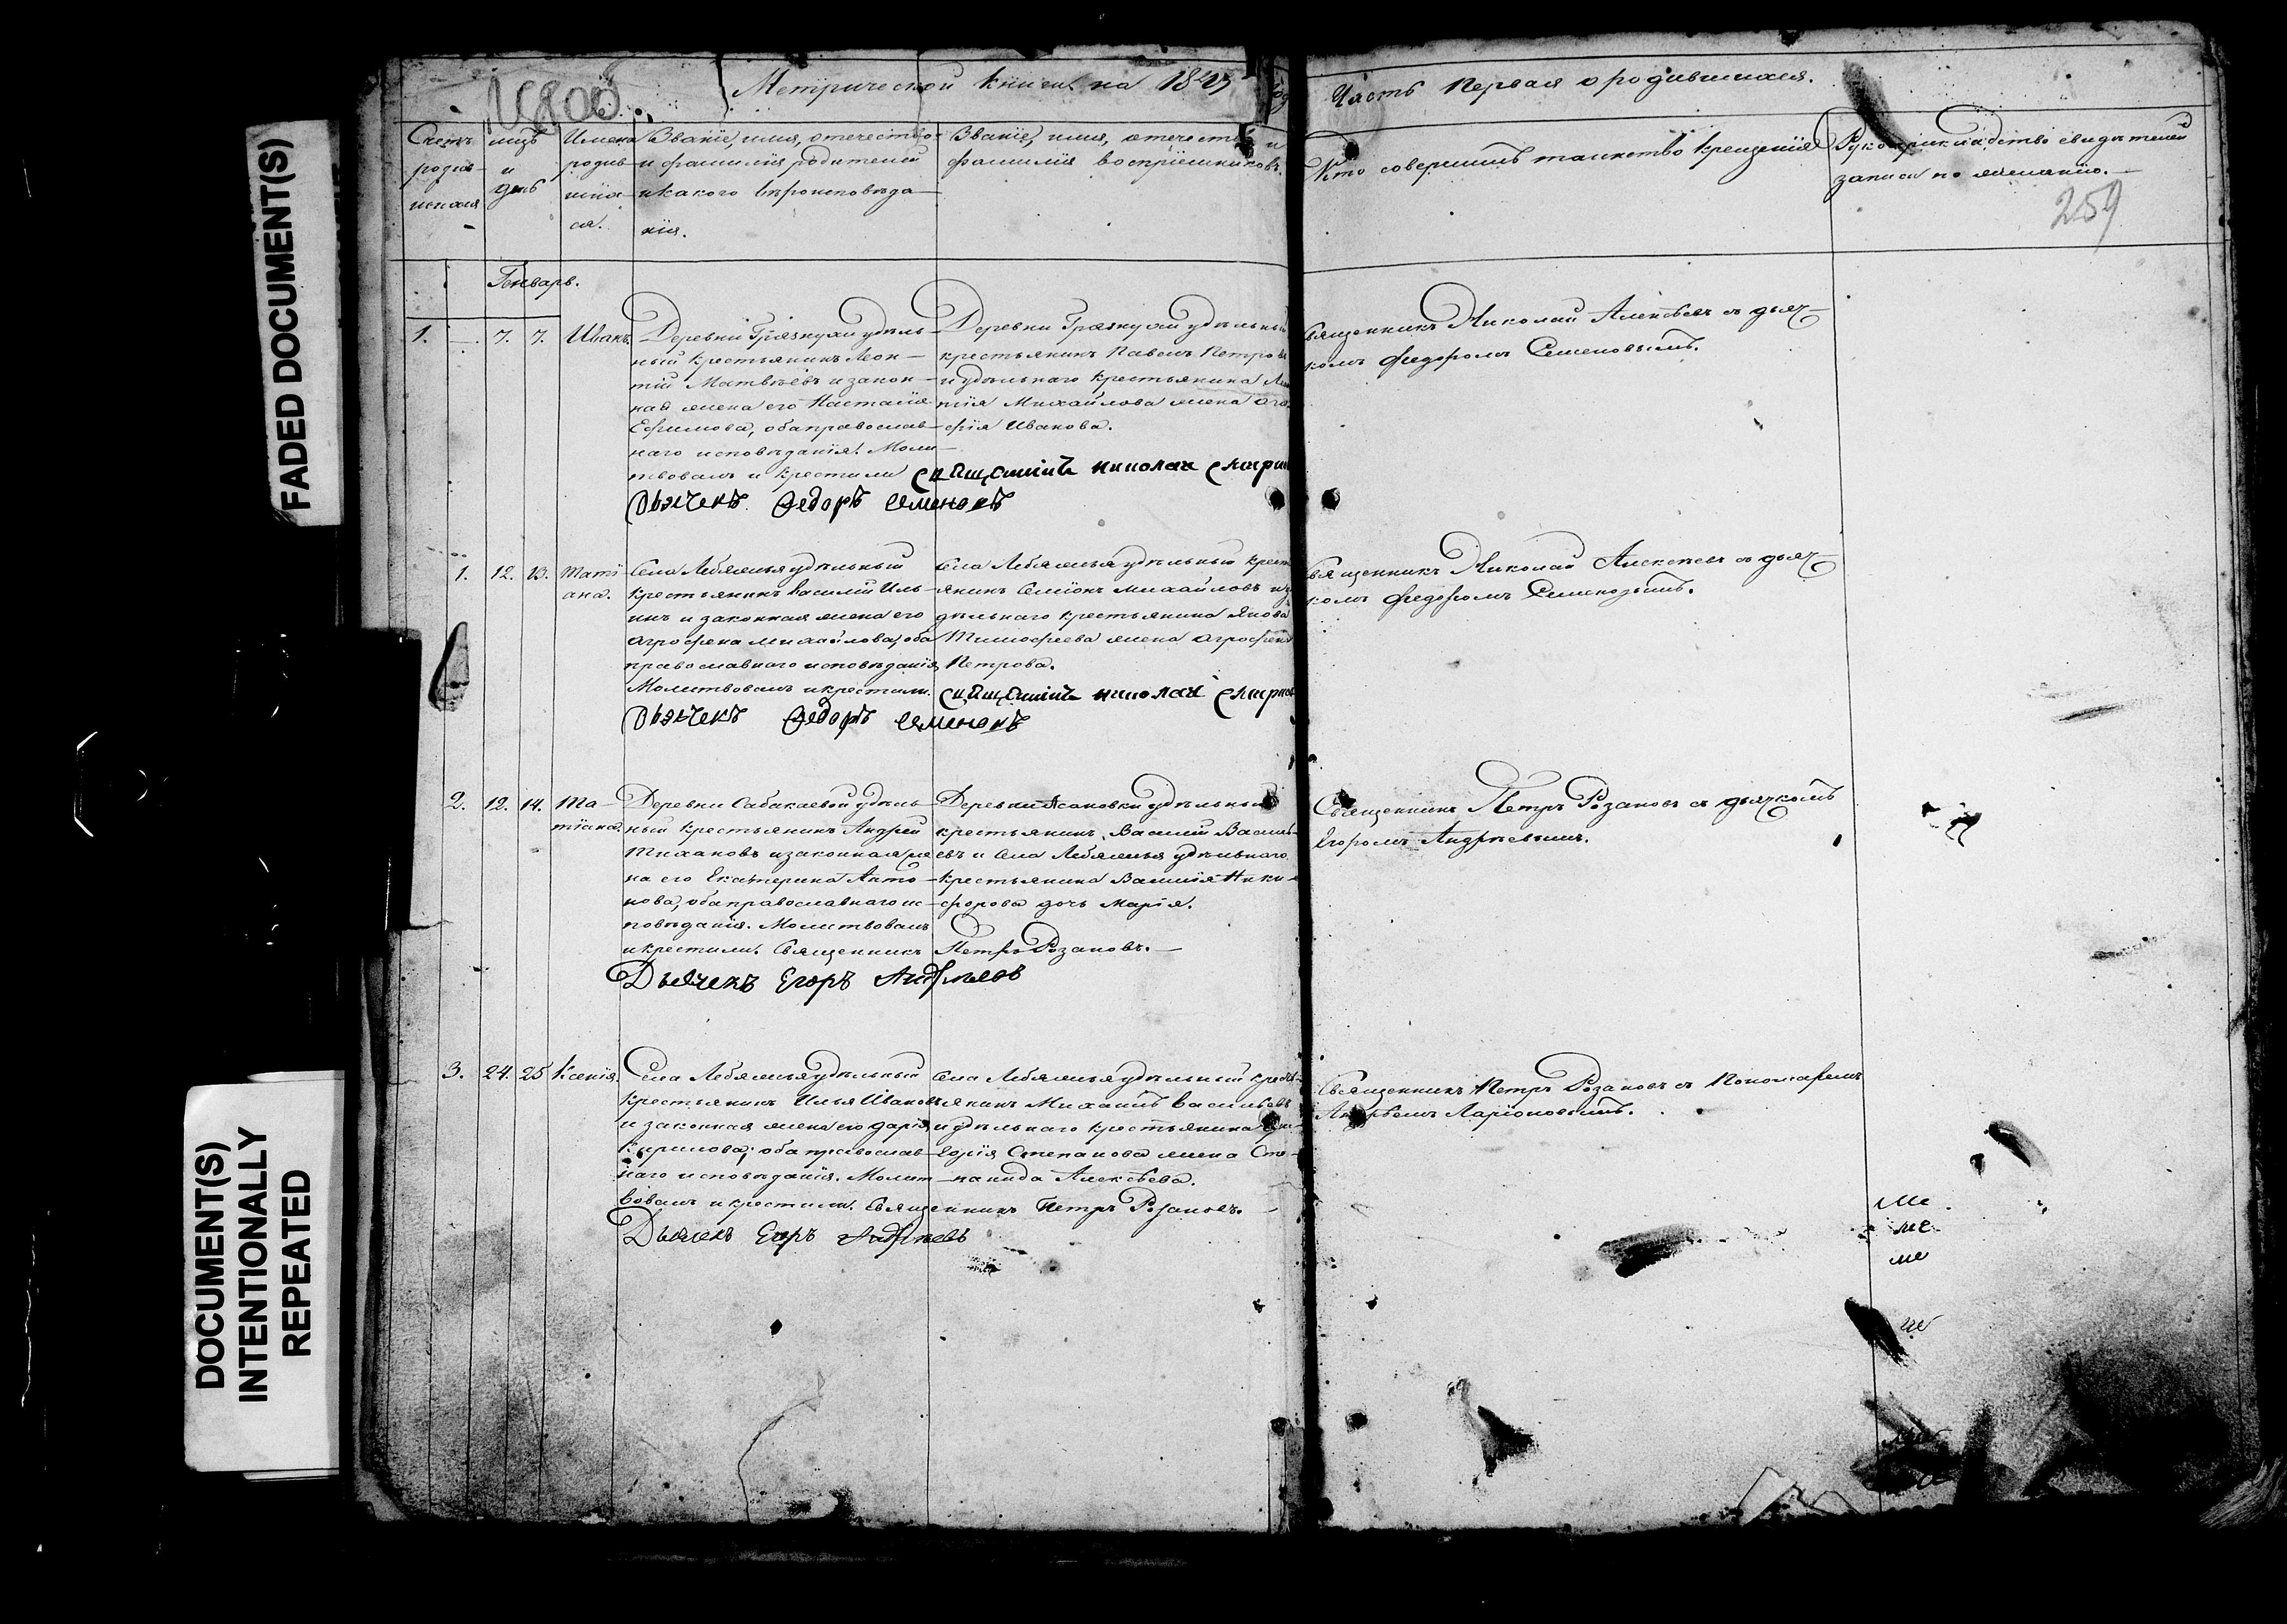 FADED DOCUMENT(S)
DOCUMENT(S)
INTENTIONALLY
REPEATED
Метрической книги на 184
Часть первая о родившихся.
259
Счетъ родив-шихся
мцъ и день
Имена родив-шихся.
Званіе, имя, отечество
и фамилія родителей
и какого вѣроисповѣда-
нія.
Званіе, имя, отечество и
фамилія воспріемниковъ.
Кто совершилъ таинство крещенія
Рукоприкладство свидѣтелей
записи по желанію.
Генварь.
1. 7. 7. Иванъ.
Деревни Грязнухи удѣль-
ный крестьянинъ Леон-
тій Матвѣевъ и закон-
ная жена его Настасія
Ефимова, оба православ-
наго исповѣданія. Моли-
твовалъ и крестили священникъ николай смирн
Дьячекъ Федоръ Семеновъ
Деревни Грязнухи удѣльный
крестьянинъ Павелъ Петровъ
и удѣльнаго крестьянина
Михайлова жена Агра-
фія Иванова.
Священникъ Николай Алексѣевъ съ дьяч-
комъ Федоромъ Семеновымъ.
1. 12. 13. Татіана.
Села Лебяжья удѣльный
крестьянинъ Василій Иль-
инъ и законная жена его
Агрофена Михайлова, оба
православнаго исповѣданія
Молитвовалъ и крестили. священникъ николай смирнов
Дьячекъ Федоръ Семеновъ
Села Лебяжья удѣльный крест
янинъ Семіонъ Михайловъ и у
дѣльнаго крестьянина Якова
Тимофеева жена Агрофена
Петрова.
Священникъ Николай Алексѣевъ съ дьяч-
комъ Федоромъ Семеновымъ.
2. 12. 14. Татіана.
Деревни Сабакаевой удѣль-
ный крестьянинъ Андрей
Тихановъ и законная же
на его Екатерина Анто-
нова, оба православнаго ис-
повѣданія. Молитвовалъ
и крестили. Священникъ Петръ Розановъ.
Дьячекъ Егоръ Андрѣевъ
Деревни Асановки удѣльный
крестьянинъ Василій Василь-
евъ и села Лебяжья удѣльнаго
крестьянина Василія Ники-
форова дочь Марія.
Священникъ Петръ Розановъ съ дьячкомъ
Егоромъ Андрѣевымъ.
3. 24. 25 Ксенія.
Села Лебяжья удѣльный
крестьянинъ Илья Ивановъ
и законная жена его Дарія
Кирилова; оба православ-
наго исповѣданія. Молит-
вовалъ и крестили. Священникъ Петръ Розановъ.
Дьячекъ Егоръ Андрѣевъ
Села Лебяжья удѣльный крест-
янинъ Михаилъ Васильевъ
и удѣльнаго крестьянина
Степанова жена Сте-
панида Алексѣева.
Священникъ Петръ Розановъ съ Пономаремъ
Андрѣемъ Ларіоновымъ.